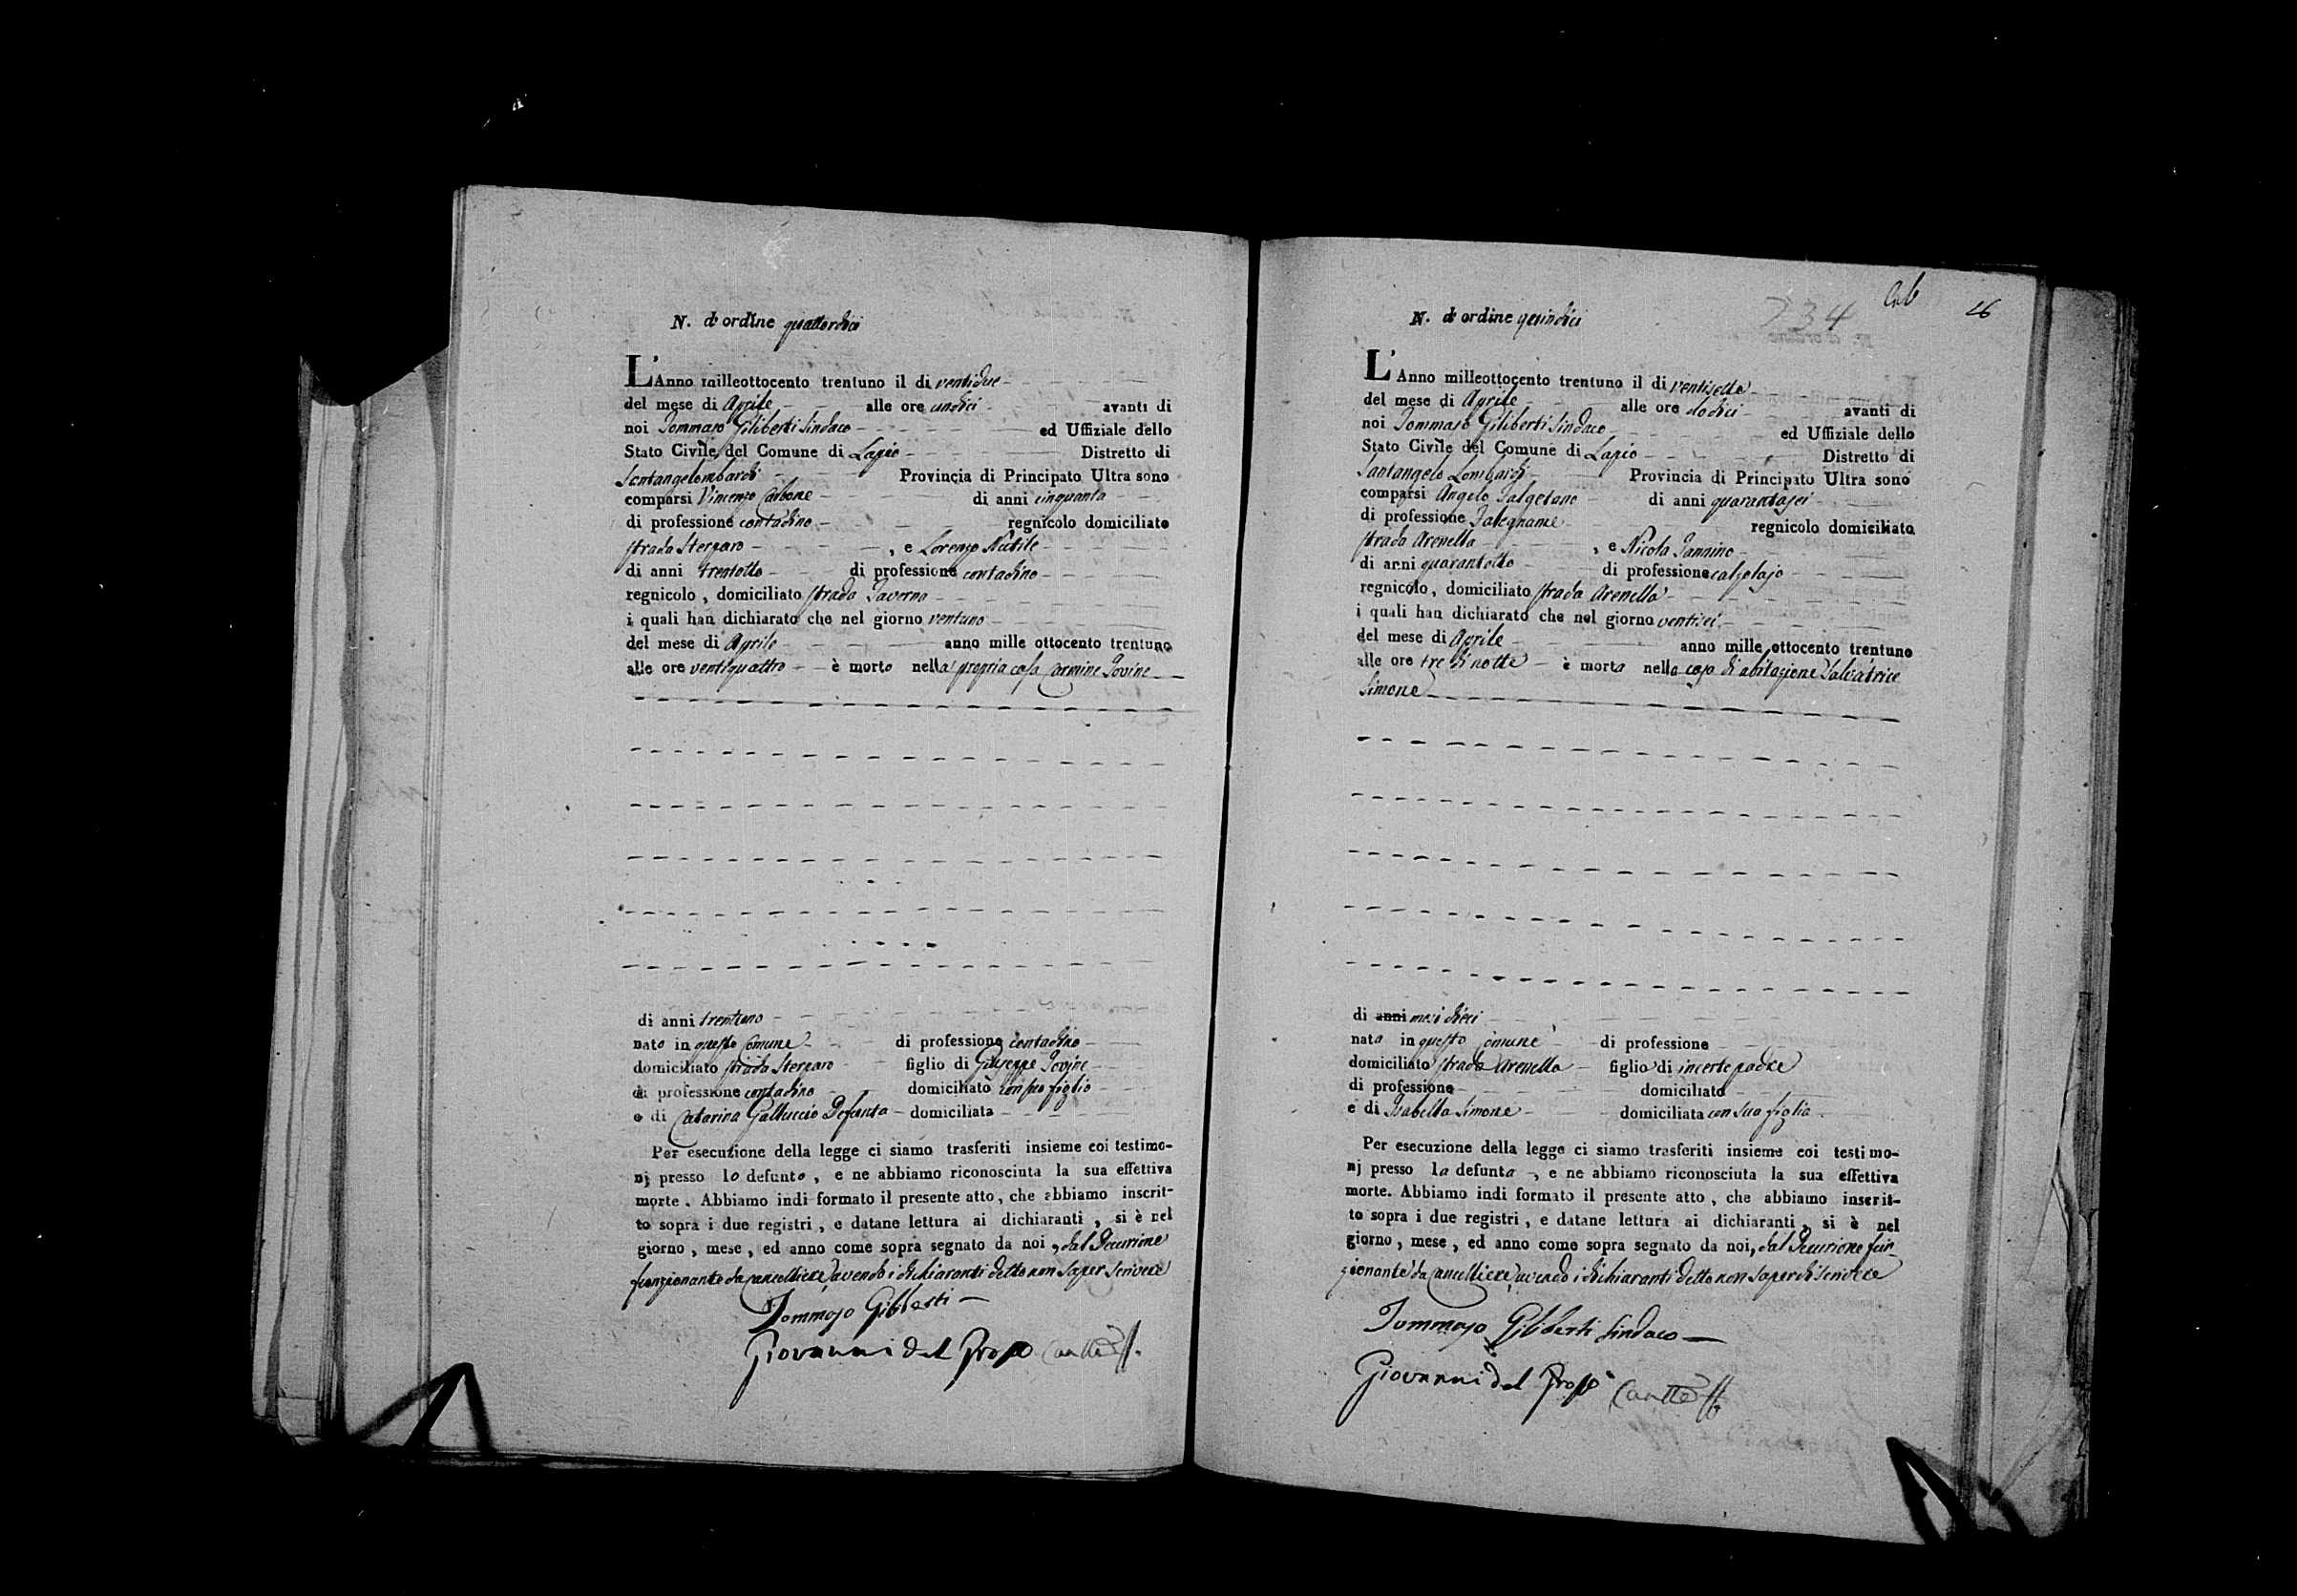 N. d'ordine quattordici
L'Anno milleottocento trentuno il di ventidue
del mese di Aprile alle ore undici avanti di
noi Tommaso Giliberti Sindaco ed Uffiziale dello
Stato Civile del Comune di Lapio Distretto di
Santangelombardi Provincia di Principato Ultra sono
comparsi Vincenzo Carbone di anni cinquanta
di professione contadino regnicolo domiciliato
strada Sterparo , e Lorenzo Nutile
di anni trentotto di professione contadino
regnicolo , domiciliato strada Taverna
i quali han dichiarato che nel giorno ventuno
del mese di Aprile anno mille ottocento trentuno
alle ore ventiquattro è morto nella propria casa Carmine Iovine
di anni trentuno
nato in questo Comune di professione contadino
domiciliato strada Sterparo figlio di Giuseppe Iovine
di professione contadino domiciliato con suo figlio
e di Catarina Galluccio Defunta domiciliata
Per esecuzione della legge ci siamo trasferiti insieme coi testimo-
nj presso lo defunto , e ne abbiamo riconosciuta la sua effettiva
morte . Abbiamo indi formato il presente atto , che abbiamo inscrit-
to sopra i due registri , e datane lettura ai dichiaranti , si è nel
giorno , mese , ed anno come sopra segnato da noi , dal Decurione
funzionante da Cancelliere, avendo i dichiaranti detto non saper scrivere
Tommaso Giliberti
Giovanni del
26
234
N. d'ordine quindici
L'Anno milleottocento trentuno il di ventisette
del mese di Aprile alle ore dodici avanti di
noi Tommaso Giliberti Sindaco ed Uffiziale dello
Stato Civile del Comune di Lapio Distretto di
Santangelo Lombardi Provincia di Principato Ultra sono
comparsi Angelo di anni quarantasei
di professione Falegname regnicolo domiciliato
strada Arenella , e Nicola Iannino
di anni quarantotto di professione calzolajo
regnicolo , domiciliato strada Arenella
i quali han dichiarato che nel giorno ventisei
del mese di Aprile anno mille ottocento trentuno
alle ore tre di notte è morta nella casa di abitazione Salvatrice
Simone
di anni mesi dieci
nata in questo Comune di professione
domiciliata strada Arenella figlia di incerto padre
di professione domiciliato
e di Isabella Simone domiciliata con sua figlia
Per esecuzione della legge ci siamo trasferiti insieme coi testimo-
nj presso la defunta , e ne abbiamo riconosciuta la sua effettiva
morte. Abbiamo indi formato il presente atto , che abbiamo inscrit-
to sopra i due registri , e datane lettura ai dichiaranti , si è nel
giorno , mese , ed anno come sopra segnato da noi, dal Decurione fun-
zionante da Cancelliere, avendo i dichiaranti detto non saper di scrivere
Tommaso Giliberti Sindaco
Giovanni del